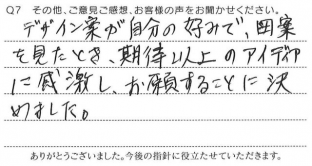 Q7 その他、ご意見ご感想、お客様の声をお聞かせください。
デザイン案が自分の好みで、図案
を見たとき、期待以上のアイディア
に感激し、お願することに決
めました。
ありがとうございました。今後の指針に役立たせていただきます。